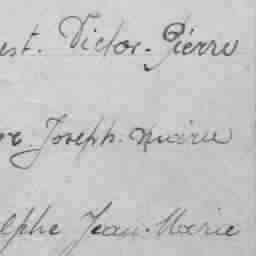 est. Victor. Pierre
or Joseph. Marie
olphe Jean. Marie